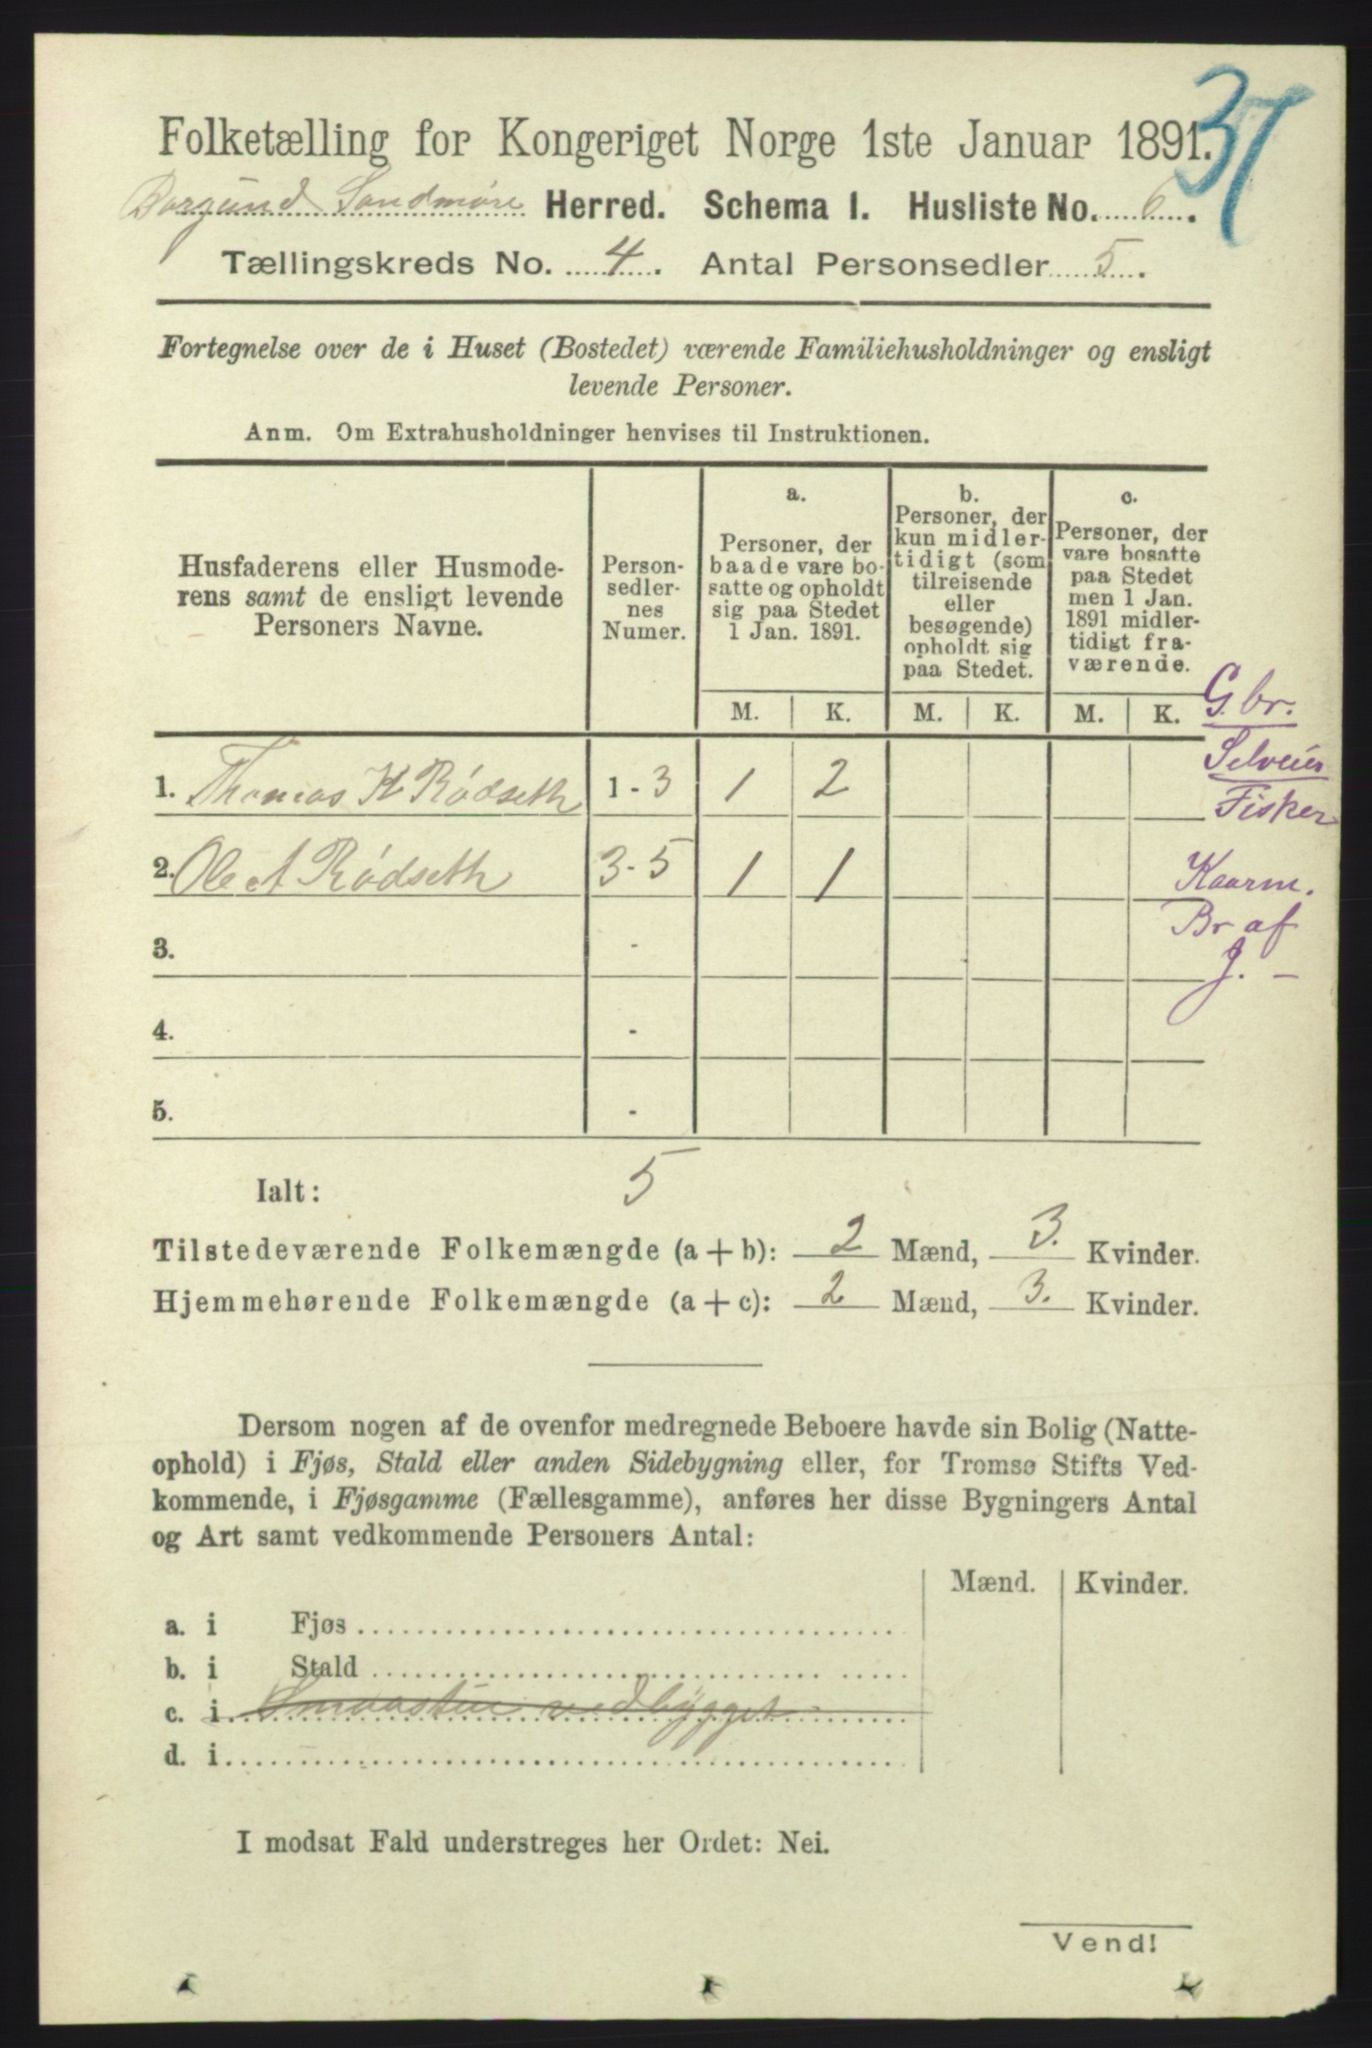 37
Folketælling for Kongeriget Norge 1ste Januar 1891.
Borgund Søndmøre Herred. Schema 1. Husliste No. 6.
Tællingskreds No. 4. Antal Personsedler 5.
Fortegnelse over de i Huset (Bostedet) værende Familiehusholdninger og ensligt
levende Personer.
Anm. Om Extrahusholdninger henvises til Instruktionen.
Husfaderens eller Husmode-
rens samt de ensligt levende
Personers Navne.
Person-
sedler-
nes
Numer.
a.
Personer, der
baade vare bo-
satte og opholdt
sig paa Stedet
1 Jan. 1891.
b.
Personer, der
kun midler-
tidigt (som
tilreisende
eller
besøgende)
opholdt sig
paa Stedet.
c.
Personer, der
vare bosatte
paa Stedet
men 1 Jan.
1891 midler-
tidigt fra-
værende.
M. K. M. K. M. K.
G.br.
Selveier
Fisker
1. Thomas H Rødseth 1 - 3 1 2
2. Ole A Rødseth 3 - 5 1 1
Kaarm.
Br af
J. -
3. -
4. -
5. -
Ialt: 5
Tilstedeværende Folkemængde (a + b): 2 Mænd, 3. Kvinder.
Hjemmehørende Folkemængde (a + c): 2 Mænd, 3. Kvinder.
Dersom nogen af de ovenfor medregnede Beboere havde sin Bolig (Natte-
ophold) i Fjøs, Stald eller anden Sidebygning eller, for Tromsø Stifts Ved-
kommende, i Fjøsgamme (Fællesgamme), anføres her disse Bygningers Antal
og Art samt vedkommende Personers Antal:
Mænd. Kvinder.
a. i Fjøs
b. i Stald
c. i Smaastue vedbygget
d. i
I modsat Fald understreges her Ordet: Nei.
Vend!